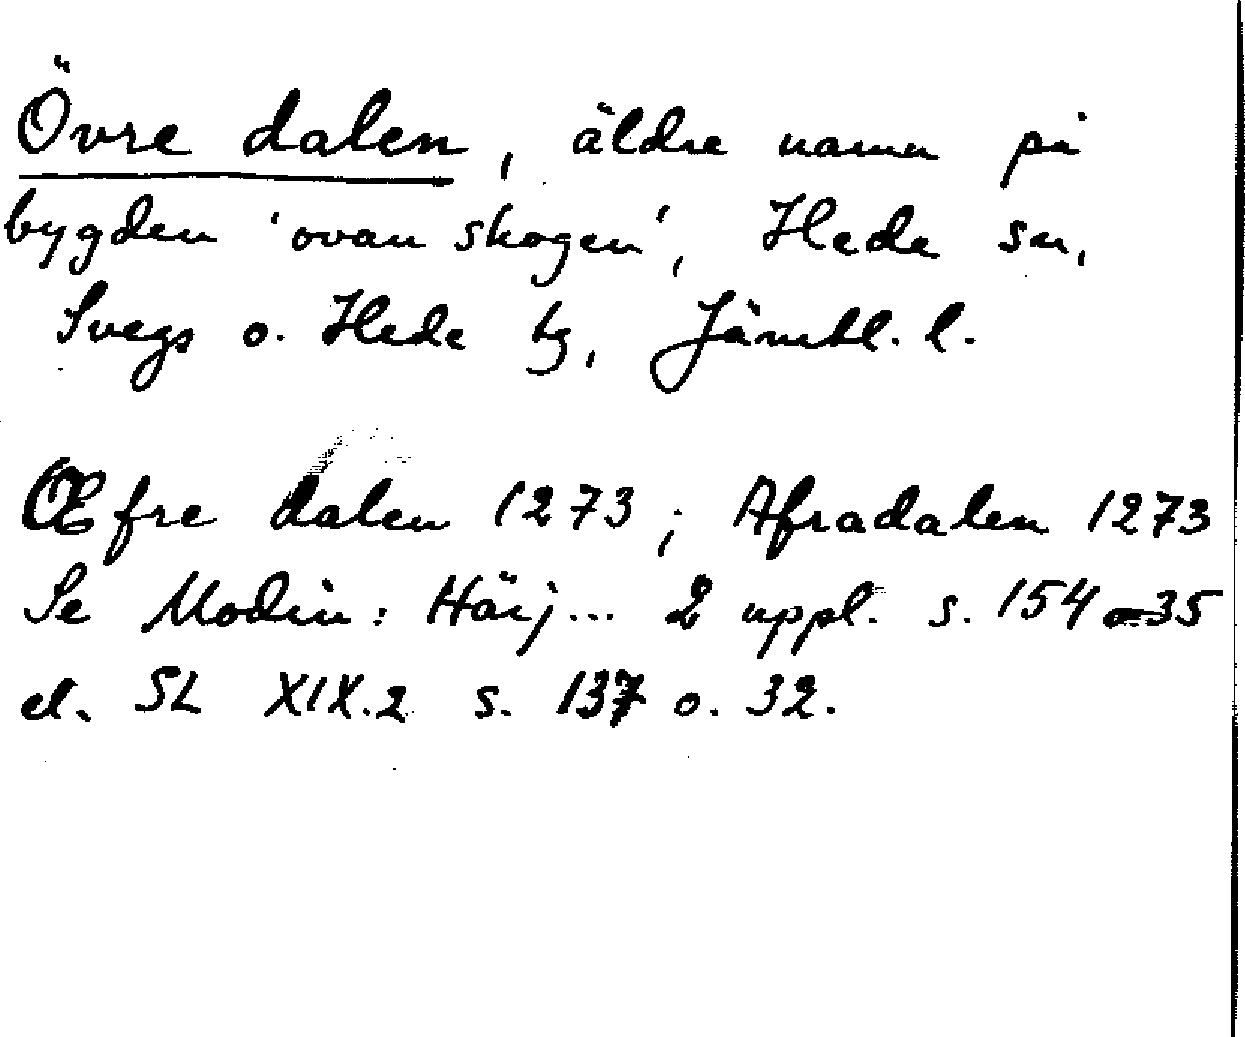 Övre dalen, äldre namn på
bygden 'ovan skogen', Hede sn,
Svegs o. Hede tg, Jämtl. l.
Œfre dalen 1273; Afradalen 1273
Se Modin: Härj... 2 uppl. s. 154 o 35
el. SL XIX.2 s. 137 o. 32.